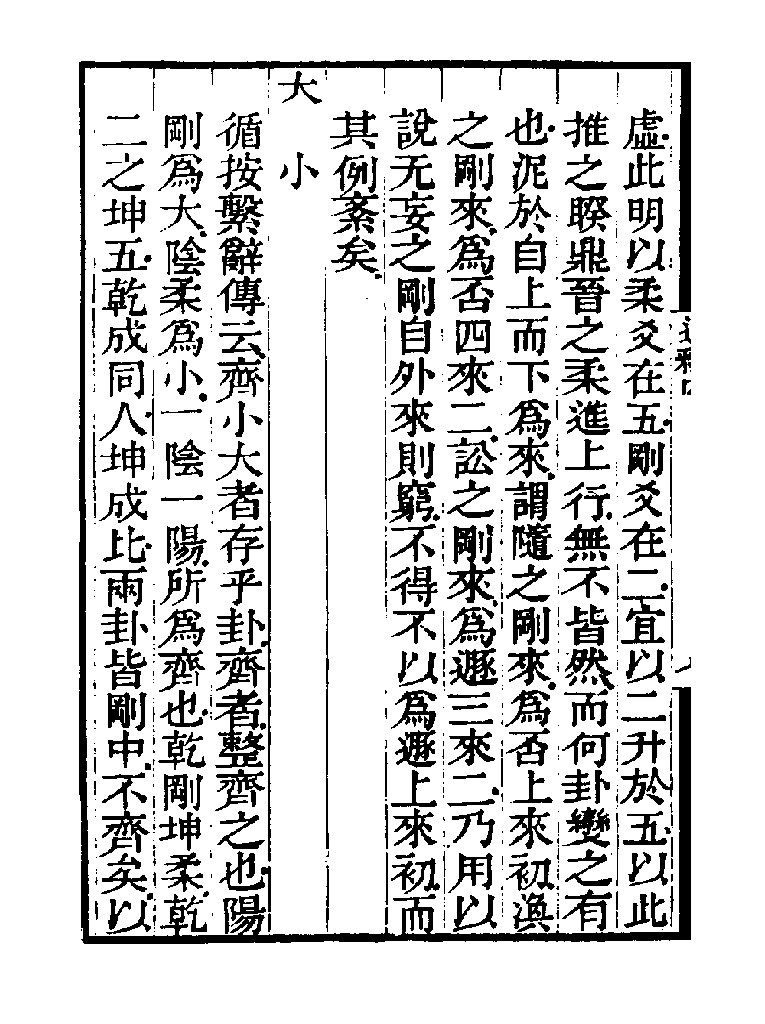 虛此明以柔爻在五剛爻在二宜以二升於五以此
推之睽鼎晉之柔進上行無不皆然而何卦變之有
也泥於自上而下爲來謂隨之剛來爲否上來初渙
之剛來爲否四來二訟之剛來爲遯三來二乃用以
說无妄之剛自外來則窮不得不以爲遯上來初而
其例紊矣
大　小
循按繫辭傳云齊小大者存乎卦齊者整齊之也陽
剛爲大陰柔爲小一陰一陽所爲齊也乾剛坤柔乾
二之坤五乾成同人坤成比兩卦皆剛中不齊矣以